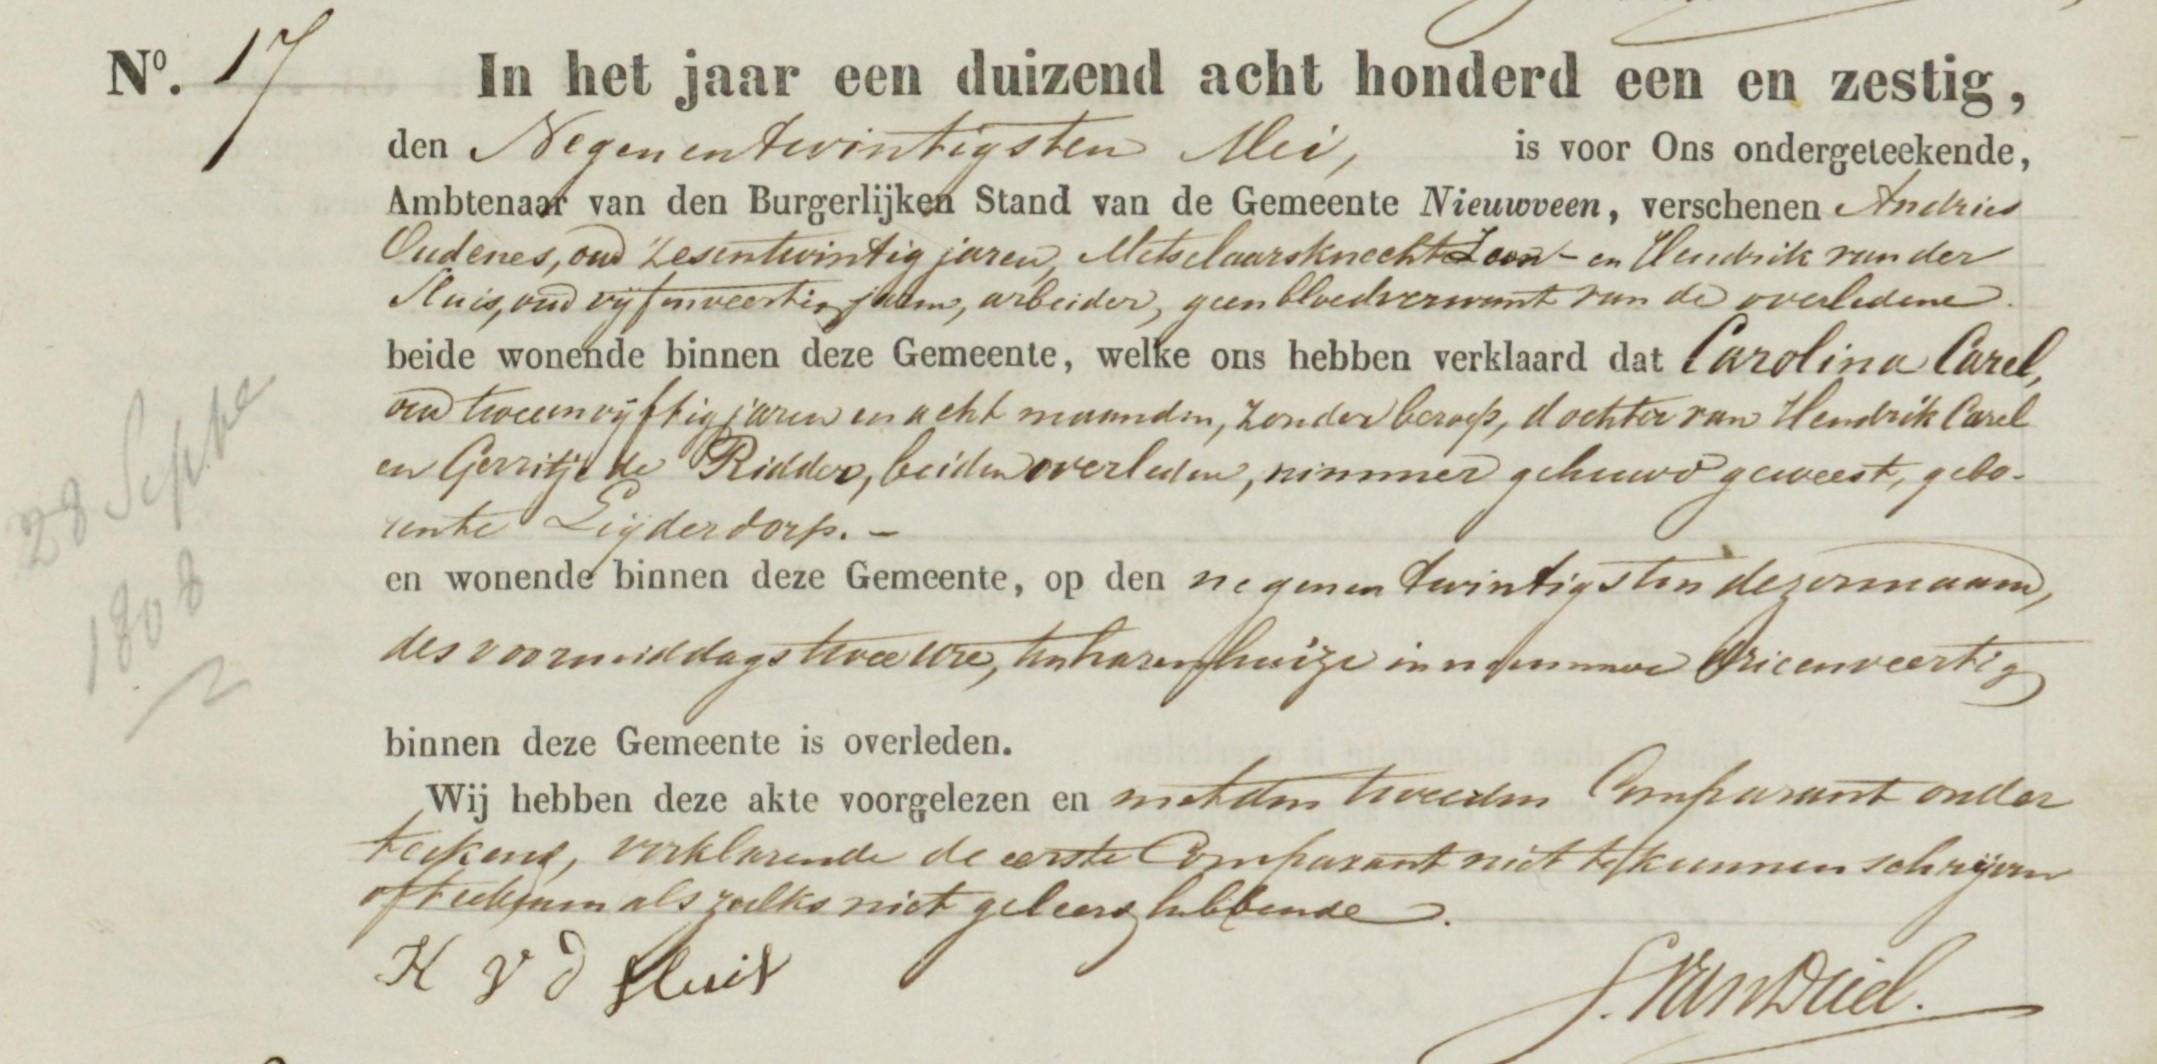 No. 17 In het jaar een duizend acht honderd een en zestig,
den Negenentwintigsten Mei, is voor Ons ondergeteekende,
Ambtenaar van den Burgerlijken Stand van de Gemeente Nieuwveen, verschenen Andries
Oudenes, oud zesentwintig jaren, Metselaarsknecht Zoon - en Hendrik van der
Sluis, oud vijfenveertig jaren, arbeider, geen bloedverwant van de overledene.
beide wonende binnen deze Gemeente, welke ons hebben verklaard dat Carolina Carel,
oud tweeenvijftig jaren en acht maanden, zonder beroep, dochter van Hendrik Carel
en Gerritje de Ridder, beiden overleden, nimmer gehuwd geweest, gebo-
ren te Leijderdorp. -
en wonende binnen deze Gemeente, op den negenentwintigsten dezer maand,
des voormiddags twee ure, ten haren huize in nummer drieenveertig
binnen deze Gemeente is overleden.
Wij hebben deze akte voorgelezen en met den tweeden Comparant onder
teekend, verklarende de eerste Comparant niet te kunnen schrijven
of teekenen als zulks niet geleerd hebbende.
H v d sluis
S. van Driel.
28 Sept
1808